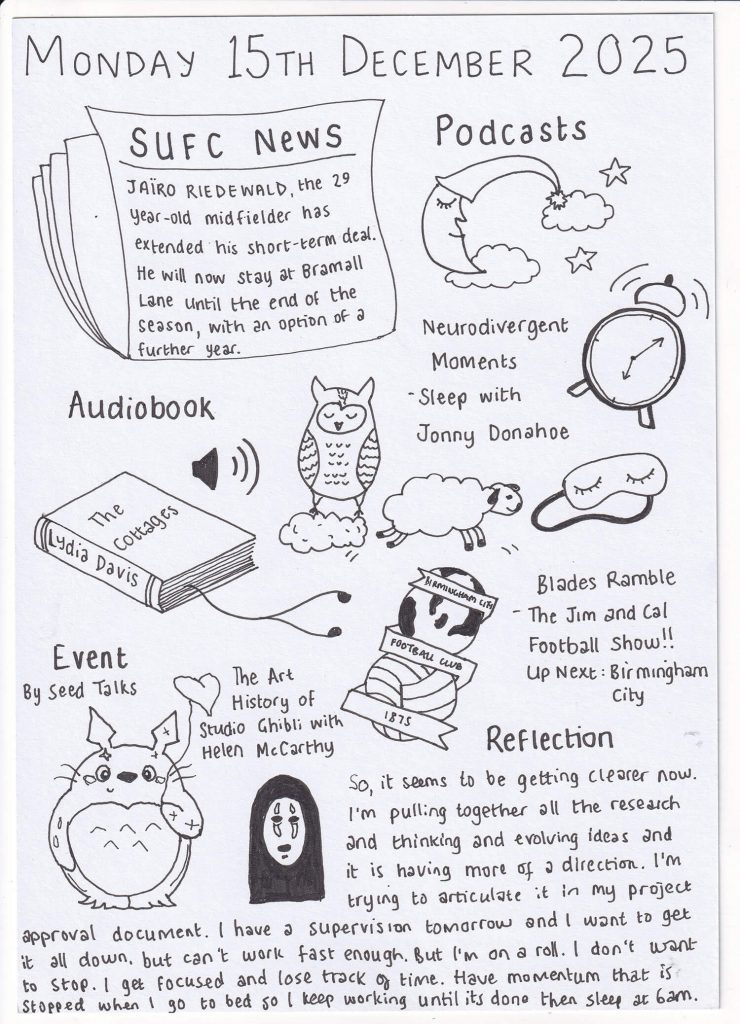 MONDAY 15TH DECEMBER 2025
SUFC News
JAÏRO RIEDEWALD, the 29
year-old midfielder has
extended his short-term deal.
He will now stay at Bramall
Lane until the end of the
season, with an option of a
further year.
Podcasts
Neurodivergent
Moments
- Sleep with
Jonny Donahoe
Audiobook
The
Cottages
Lydia Davis
Blades Ramble
- The Jim and Cal
Football Show!!
Up Next: Birmingham
City
BIRMINGHAM CITY
FOOTBALL CLUB
1875
Event
By Seed Talks
The Art
History of
Studio Ghibli with
Helen McCarthy
Reflection
So, it seems to be getting clearer now.
I'm pulling together all the research
and thinking and evolving ideas and
it is having more of a direction. I'm
trying to articulate it in my project
approval document. I have a supervision tomorrow and I want to get
it all down, but can't work fast enough. But I'm on a roll. I don't want
to stop. I get focused and lose track of time. Have momentum that is
stopped when I go to bed so I keep working until its done then sleep at 6am.